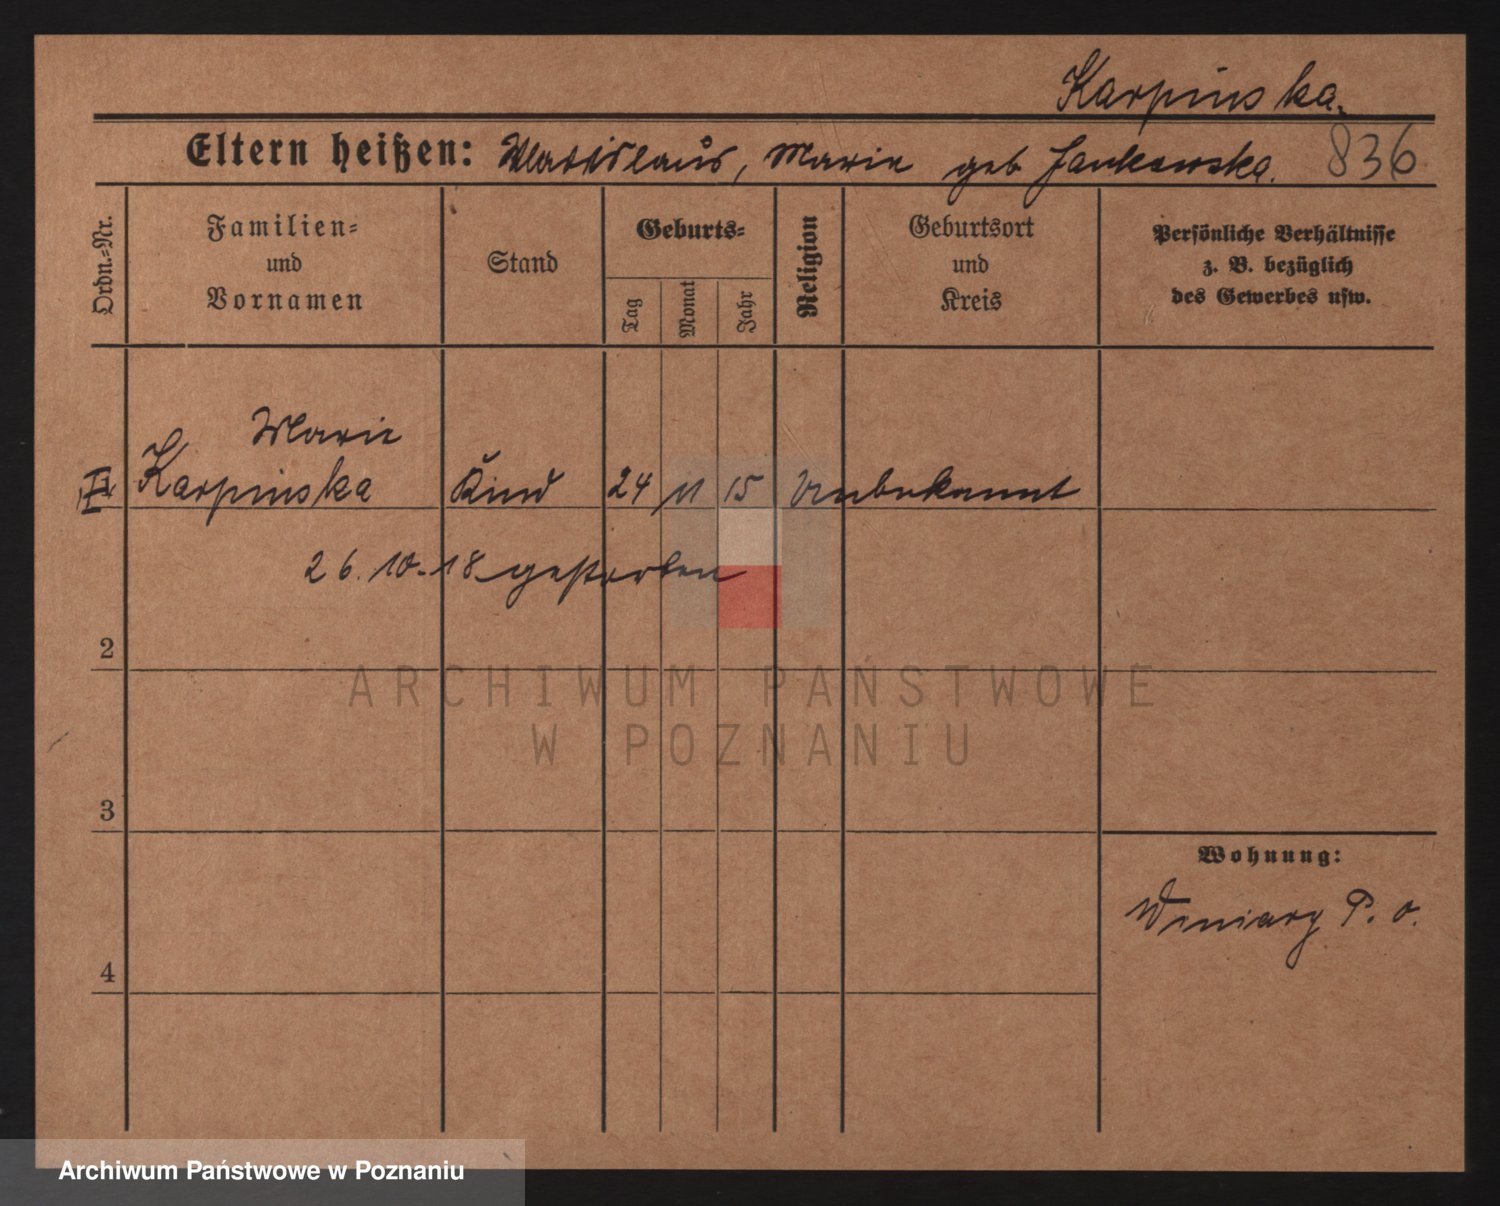 Karpinska.
Eltern heißen: Wladislaus, Marie geb Jankowska. 836
Ordn.=Nr.
Familien=
und
Vornamen
Stand
Geburts=
Tag
Monat
Jahr
Religion
Geburtsort
und
Kreis
Persönliche Verhältnisse
z. B. bezüglich
des Gewerbes usw.
Marie
Karpinska Kind 24 11 15 Unbekannt
26. 10. 18 gestorben
2
ARCHIWUM PAŃSTWOWE
W POZNANIU
3
Wohnung:
Winiary P. o.
4
Archiwum Państwowe w Poznaniu